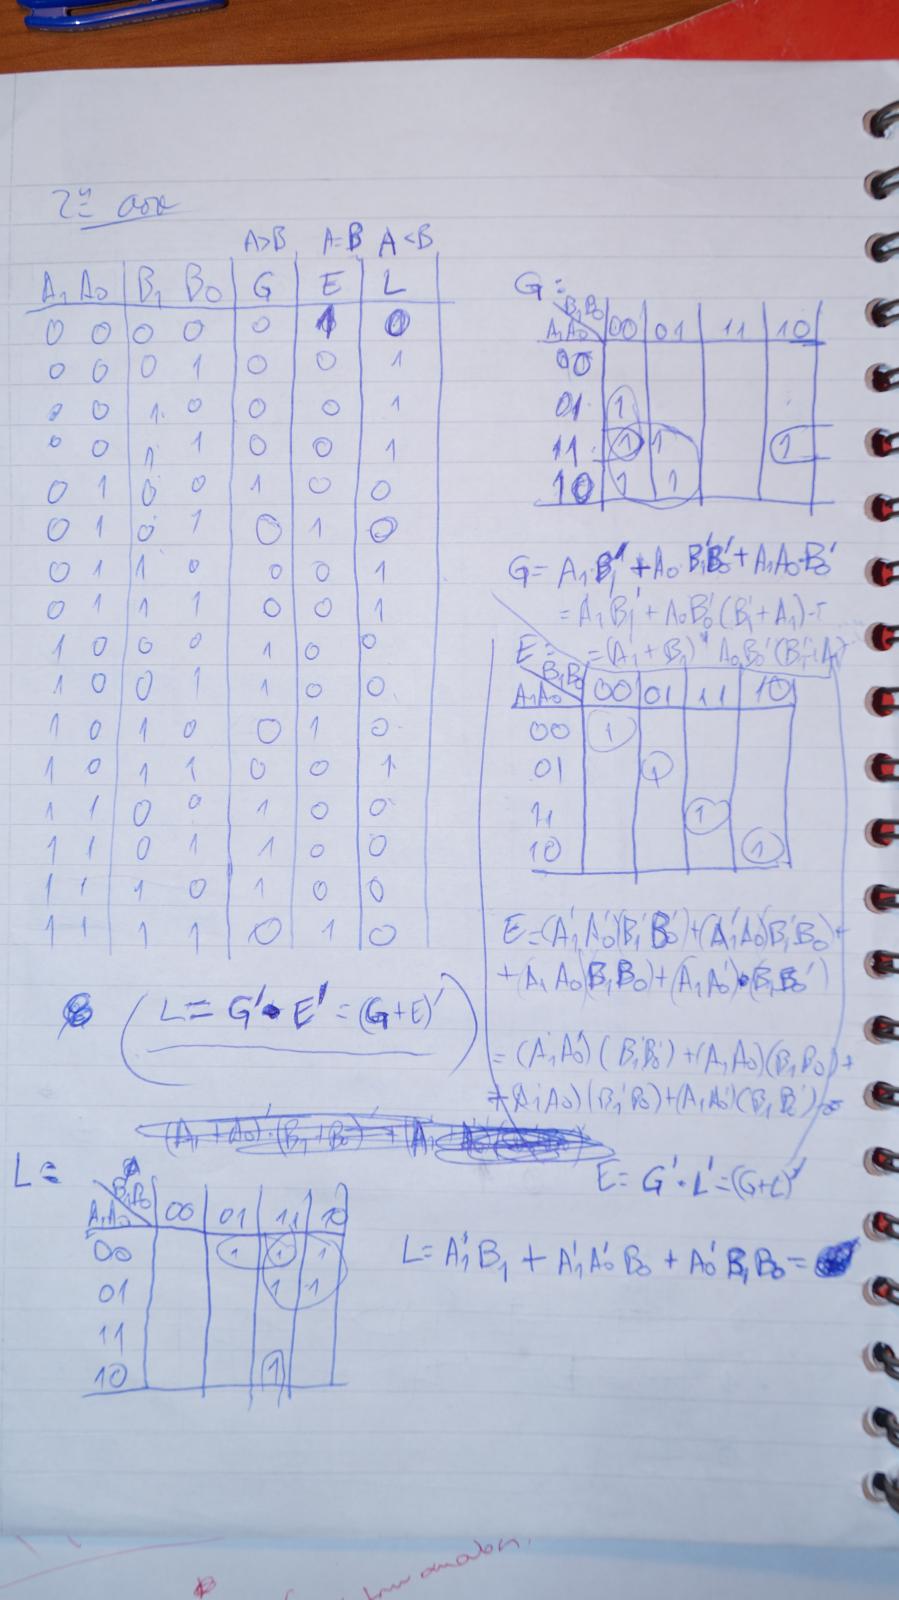 2η ασκ
A>B A=B A<B
A₁ A₀ B₁ B₀ G E L
0 0 0 0 0 1 0
0 0 0 1 0 0 1
0 0 1 0 0 0 1
0 0 1 1 0 0 1
0 1 0 0 1 0 0
0 1 0 1 0 1 0
0 1 1 0 0 0 1
0 1 1 1 0 0 1
1 0 0 0 1 0 0
1 0 0 1 1 0 0
1 0 1 0 0 1 0
1 0 1 1 0 0 1
1 1 0 0 1 0 0
1 1 0 1 1 0 0
1 1 1 0 1 0 0
1 1 1 1 0 1 0
L = G'·E' = (G+E)'
G=
B₁B₀
A₁A₀ 00 01 11 10
00
01 1
11 1 1 1
10 1 1
G= A₁·B₁' + A₀ B₁'B₀' + A₁A₀·B₀'
= A₁B₁' + A₀B₀'(B₁'+A₁)
E= =(A₁'+B₁)' A₀B₀'(B₁'+A₁)
B₁B₀
A₁A₀ 00 01 11 10
00 1
01 1
11 1
10 1
E=(A₁'A₀')(B₁'B₀')+(A₁'A₀)(B₁'B₀)+
+(A₁A₀)(B₁B₀)+(A₁A₀')·(B₁B₀')
=(A₁'A₀')(B₁'B₀')+(A₁A₀)(B₁B₀)+
+(A₁'A₀)(B₁'B₀)+(A₁A₀')(B₁B₀')=
(A₁+A₀)'·(B₁+B₀)' + (A₁
E= G'·L'=(G+L)'
L=
B₁B₀
A₁A₀ 00 01 11 10
00 1 1 1
01 1 1
11
10 1
L= A₁'B₁ + A₁'A₀'B₀ + A₀'B₁B₀=